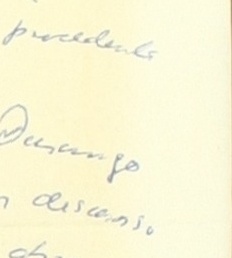 procedente
Durango
n descanso,